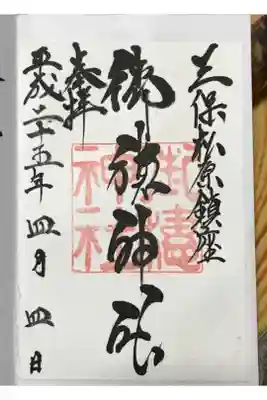 三保松原鎮座
御穂神社
奉拝
平成二十五年四月四日
神社